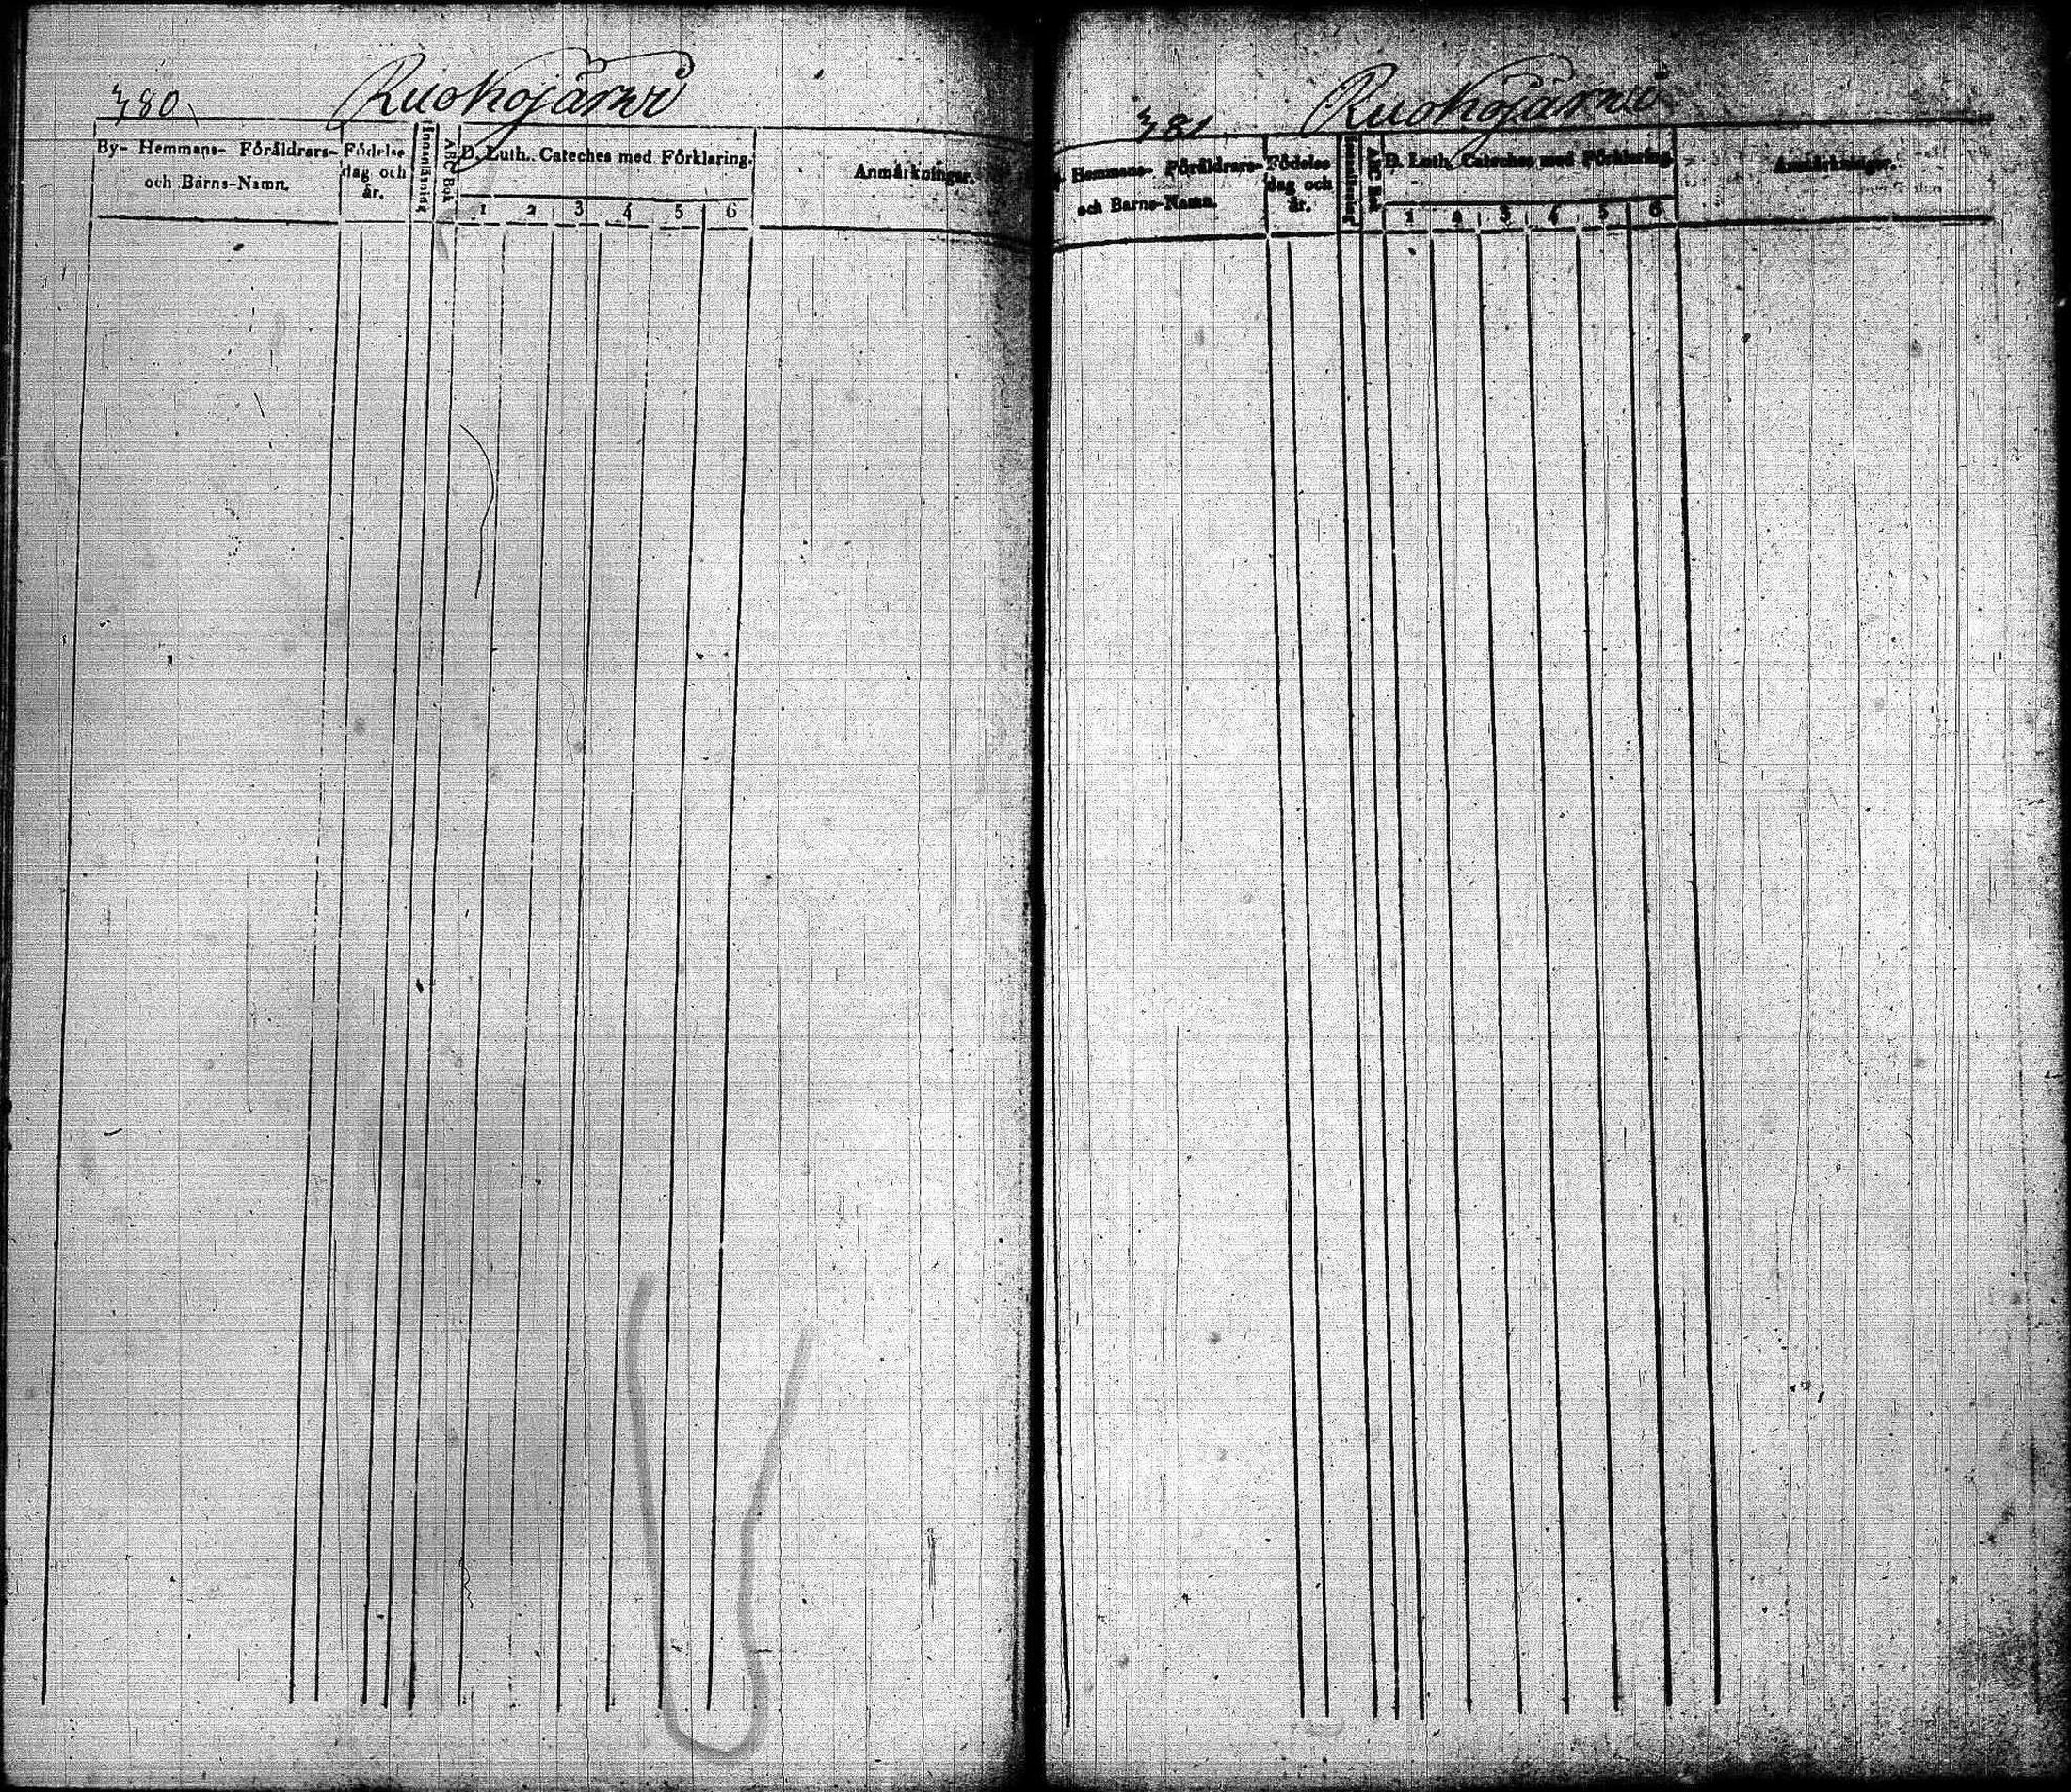 380
Ruokojärwi
By- Hemmans- Föräldrars- och Barns-Namn.
Födelse dag och år.
Innanläsning
ABC Bok
D. Luth. Cateches med Förklaring.
1 2 3 4 5 6
Anmärkningar.
381
Ruokojärwi
Hemmans- Föräldrars- och Barns-Namn.
Födelse dag och år.
Innanläsning
ABC Bok
D. Luth. Cateches med Förklaring.
1 2 3 4 5 6
Anmärkningar.